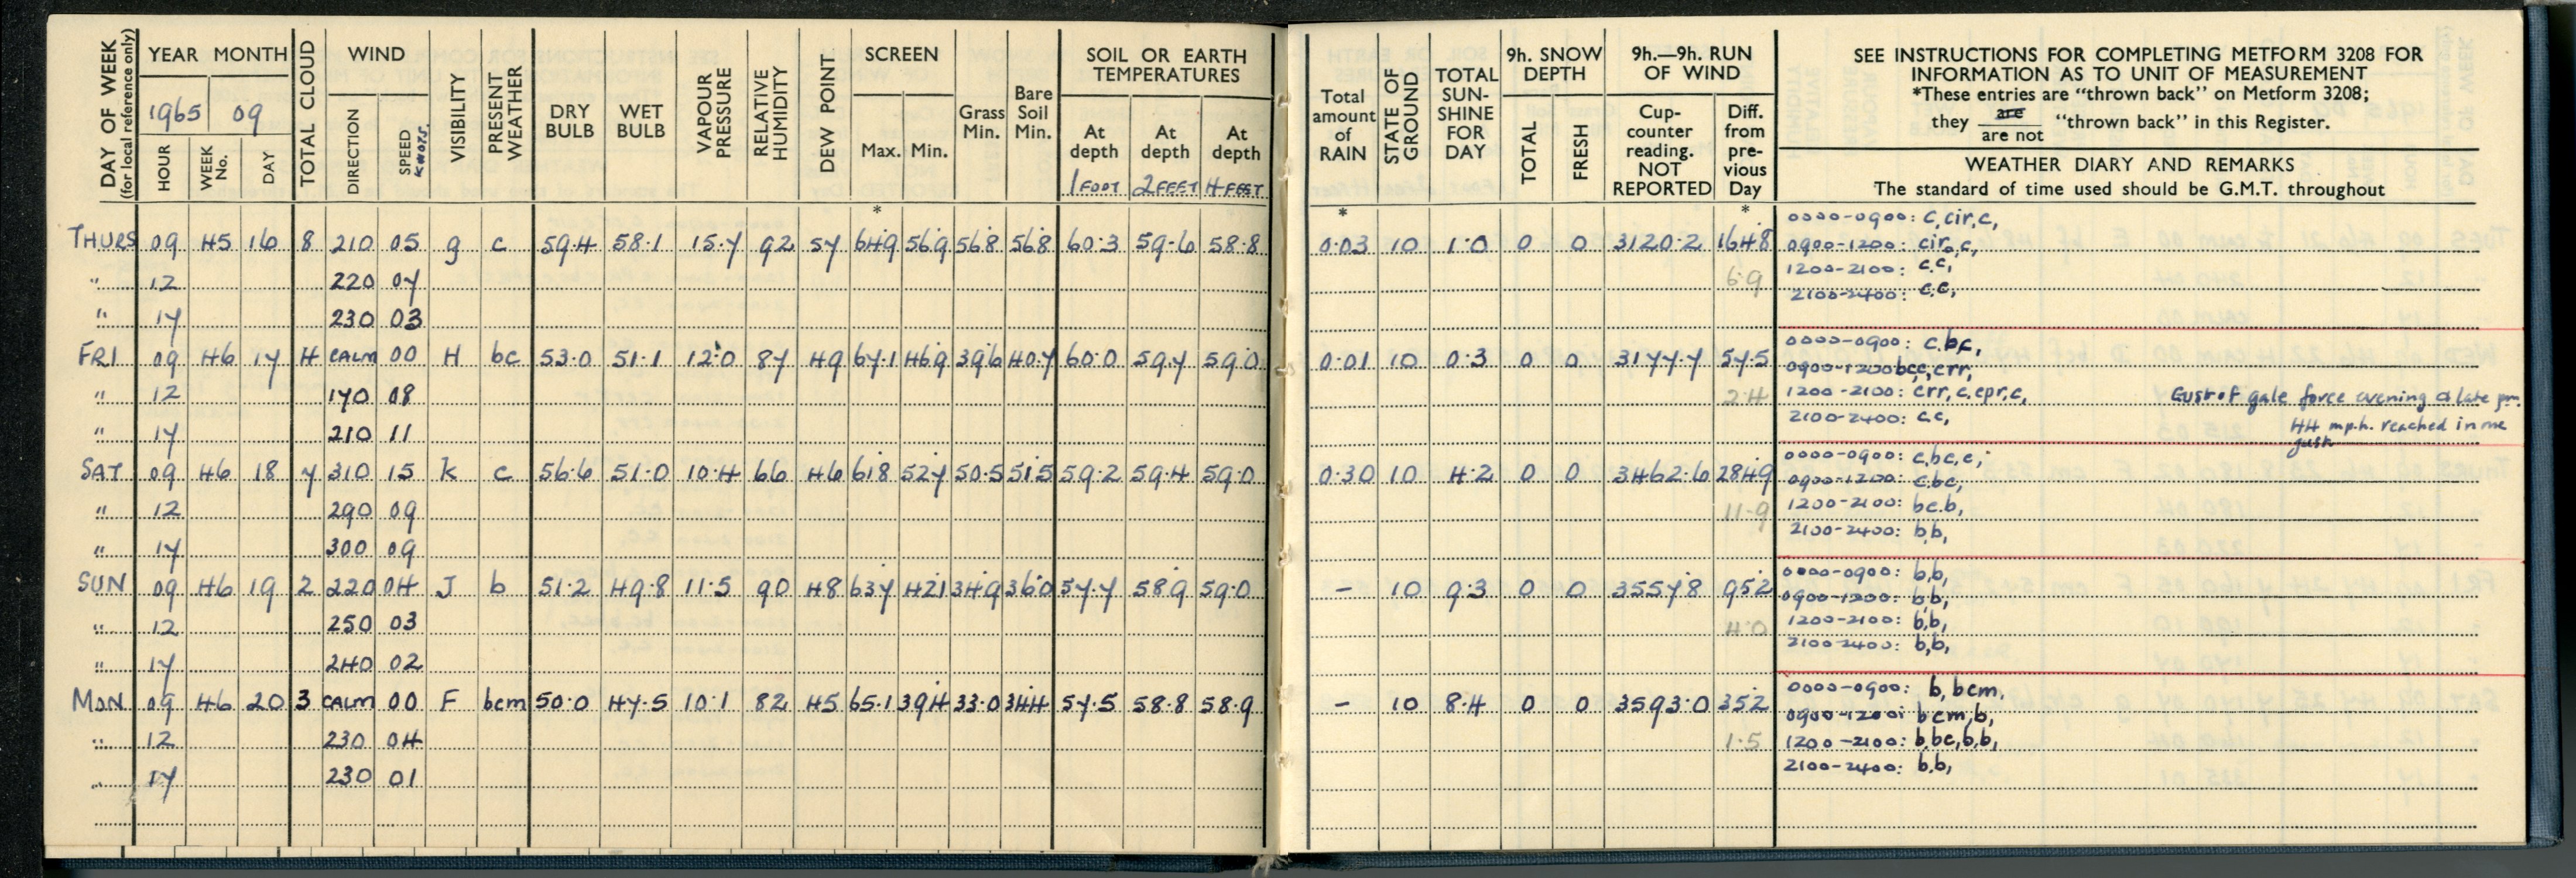 DAY OF WEEK (for local reference only) YEAR MONTH TOTAL CLOUD WIND VISIBILITY PRESENT WEATHER DRY BULB WET BULB VAPOUR PRESSURE RELATIVE HUMIDITY DEW POINT SCREEN Grass Min. Bare Soil Min. SOIL OR EARTH TEMPERATURES
1965 09
HOUR WEEK No. DAY DIRECTION SPEED KNOTS. Max. Min. At depth At depth At depth
1 FOOT 2 FEET 4 FEET
*
THURS 09 45 16 8 210 05 g c 59.4 58.1 15.7 92 57 64.9 56.9 56.8 56.8 60.3 59.6 58.8
" 12 220 07
" 17 230 03
FRI 09 46 17 4 CALM 00 H bc 53.0 51.1 12.0 87 49 67.1 46.9 39.6 40.7 60.0 59.7 59.0
" 12 170 08
" 17 210 11
SAT 09 46 18 7 310 15 k c 56.6 51.0 10.4 66 46 61.8 52.7 50.5 51.5 59.2 59.4 59.0
" 12 290 09
" 17 300 09
SUN 09 46 19 2 220 04 J b 51.2 49.8 11.5 90 48 63.7 42.1 34.9 36.0 57.7 58.9 59.0
" 12 250 03
" 17 240 02
MON 09 46 20 3 CALM 00 F bcm 50.0 47.5 10.1 82 45 65.1 39.4 33.0 34.4 57.5 58.8 58.9
" 12 230 04
" 17 230 01
Total amount of RAIN STATE OF GROUND TOTAL SUN-SHINE FOR DAY 9h. SNOW DEPTH 9h.—9h. RUN OF WIND
TOTAL FRESH Cup-counter reading. NOT REPORTED Diff. from pre-vious Day
SEE INSTRUCTIONS FOR COMPLETING METFORM 3208 FOR
INFORMATION AS TO UNIT OF MEASUREMENT
*These entries are "thrown back" on Metform 3208;
they are / are not "thrown back" in this Register.
WEATHER DIARY AND REMARKS
The standard of time used should be G.M.T. throughout
* *
0000-0900: c, cir, c,
0.03 10 1.0 0 0 3120.2 164.8 0900-1200: cir, c,
6.9 1200-2100: c.c,
2100-2400: c.c,
0000-0900: c.bc,
0.01 10 0.3 0 0 3177.7 57.5 0900-1200 bcc, crr,
2.4 1200-2100: crr, c, cpr, c, Gust of gale force evening & late pm.
2100-2400: c.c, 44 m.p.h. reached in one
gust
0000-0900: c, bc, c,
0.30 10 4.2 0 0 3462.6 284.9 0900-1200: c.bc,
11.9 1200-2100: bc.b,
2100-2400: b.b,
0000-0900: b,b,
- 10 9.3 0 0 3557.8 95.2 0900-1200: b,b,
4.0 1200-2100: b,b,
2100-2400: b,b,
0000-0900: b, bcm,
- 10 8.4 0 0 3593.0 35.2 0900-1200: bcm, b,
1.5 1200-2100: b, bc, b, b,
2100-2400: b.b,